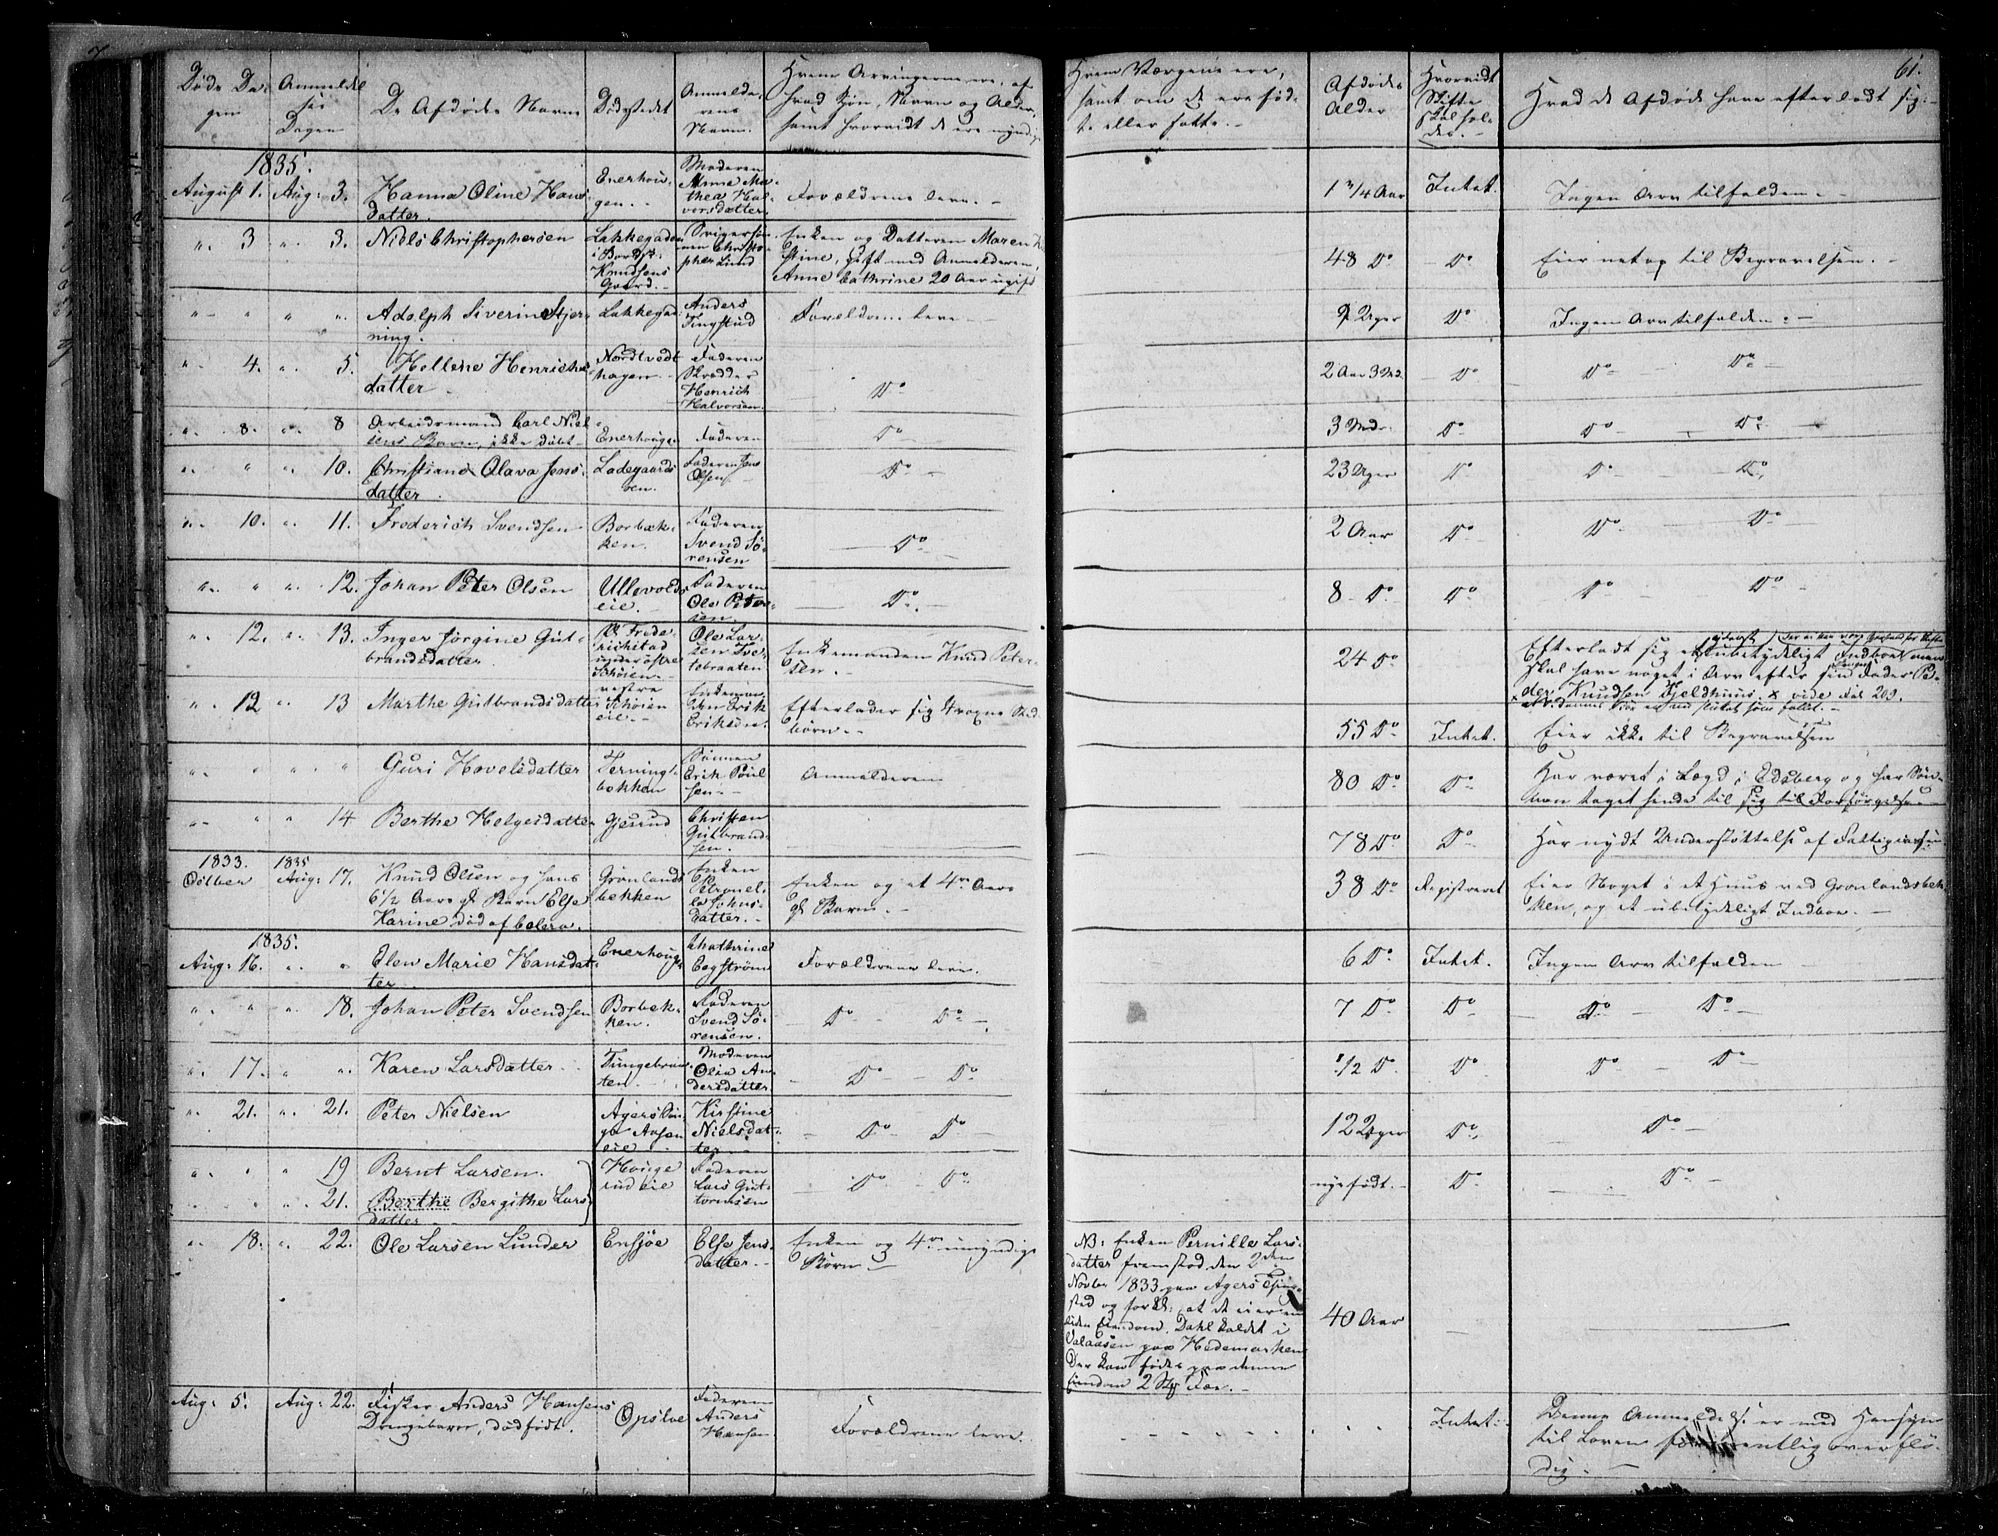 61.
Døds Da-
gen
Anmeldel
ses
Dagen
De Afdødes Navne
Dødstedet
Anmelde-
rens
Navn.
Hvem Arvingerne ere, af
hvad Kjøn, Navn og Alder,
samt hvorvidt de ere myndige
Hvem Værgerne ere,
samt om de ere fød-
te eller satte.-
Afdødes
Alder
Hvorvidt
Skifte
skal hol-
des.-
Hvad de Afdøde have efterladt sig:-
1835.
August 1. Aug: 3. Hanna Oline Hans
datter.
Enerhou-
gen.-
Moderen
Anne Ma-
thea Hal-
vorsdatter.
Forældrene leve.-
1 3/4 Aar
Intet.
Ingen Arv tilfalden.-
" 3 " 3. Niels Christophersen
Lakkegaden
i Bordst:
Knudsens
Gaard.-
Svigersøn-
nen Christo-
pher Lund
Enken og Datteren Maren K
stine, gift med Anmelderen,
Anne Cathrine 20 Aar ugift
48 Do
Do
Eier netop til Begravelsen.-
" " " " Adolph Siverin Stjer-
ning.
Lakkegad:
Anders
Tingstad
Forældrene leve
9 Uger
Do
Ingen Arv tilfalden.-
" 4. " 5. Hellene Henrichs
datter
Nordtvedt
hagen
Faderen
Skrædder
Henrich
Halvorsen.
Do
2 Aar 3 Md
Do
Do Do
" 8. " 8 Arbeidsmand Carl Niel
sens Barn, ikke døbt
Enerhougen
Faderen
Do
3 Mdr.
Do
Do Do
" " " 10. Christiane Olava Jens-
datter.
Ladegaards
øen.
Faderen Jens
Olsen
Do
23 Uger
Do
Do Do
" 10. " 11. Frederich Svendsen
Borbæk-
ken.
Faderen
Svend Sø-
rensen
Do
2 Aar
Do
Do Do
" " " 12. Johan Peter Olsen
Ullevolds
eie.
Faderen
Ole Peter-
sen.
Do.
8 Do
Do
Do Do
" 12. " 13. Inger Jørgine Gut-
brandsdatter
Pr Frede-
richstad
under østre
Schøien
Ole Lar-
sen Tve-
tebraaten
Enkemanden Knud Peter-
sen.
24 Do
Efterladt sig et ubetydeligt Indboe men
skal have noget i Arv efter sin Fader Pe-
der Knudsen Fjeldhuus. x vide Fol 209.
" 12 " 13 Marthe Gutbrandsdatter
vestre
Schøien
eie.
Enkeman-
den Erik
Eriksen.
Efterlader sig 4 voxne Sted
børn.-
55 Do
Intet.
Eier ikke til Begravelsen
" " " " Guri Hovelsdatter
Terning-
bekken
Sønnen
Erik Poul
sen.-
Anmelderen
80 Do
Do
Har været i Lægd i Edsberg og har Søn-
nen taget hende til sig til Forsørgelse
" " " 14 Berthe Helgesdatter
Gjesrud
Christen
Gutbrand-
sen.
78 Do
Do
Har nydt Understøttelse af Fattigvæsen
1833.
Octbr
1835
Aug: 17.
Knud Olsen og hans
6 1/2 Aars gl Barn Else
Karine død af Colera.
Grønlands
bekken
Enken
Petronel-
le Johns-
datter.
Enken og et 4re Aars
gl Barn.-
38 Do
Registreret
Eier Noget i et Huus ved Grønlandsbek
ken, og et ubetydeligt Indboe.-
1835.
Aug: 16. " " Elen Marie Hansdat-
ter
Enerhoug:
Chathrine
Engstrøm
Forældrene leve.
6 Do
Intet.
Ingen Arv tilfalden
" " " 18. Johan Peter Svendsen
Borbæk-
ken.
Faderen
Svend Sø-
rensen.
Do Do
7 Do
Do
Do Do
" 17. " " Karen Larsdatter.
Tungebraa-
ten.
Moderen
Olia An-
dersdatter
Do Do
1/2 Do
Do
Do Do
" 21. " 21. Peter Nielsen
Agers Præ-
ge Ansen
eie
Kirstine
Nielsdat-
ter
Do Do
12 Uger
Do
Do
" " " 19 Bernt Larsen.
" " " 21. Berthe Bergithe Lars
datter
Houge
rud eie
Faderen
Lars Gut-
tormsen
Do Do
nyefødt.-
Do
Do
" 18. " 22. Ole Larsen Lunder
Ensjøe
Else Jens-
datter.-
Enken og 4re umyndige
Børn
NB: Enken Pernille Lars-
datter fremstod den 2den
Novbr 1833 paa Agers Thing-
sted og forkl: at de eier en
liden Eiendom, Dahl kaldet i
Valaasen paa Hedemarken
Der kan fødes paa denne
Eiendom 2 Stk Føe.-
40 Aar
Aug: 5. Aug: 22. Fisker Anders Hansens
Drengebarn, dødfødt.
Opsloe
Faderen
Anders
Hansen
Forældrene leve.
Intet:
Denne Anmeldelse er med Hensyn
til Loven for ventlig overflø-
dig.-